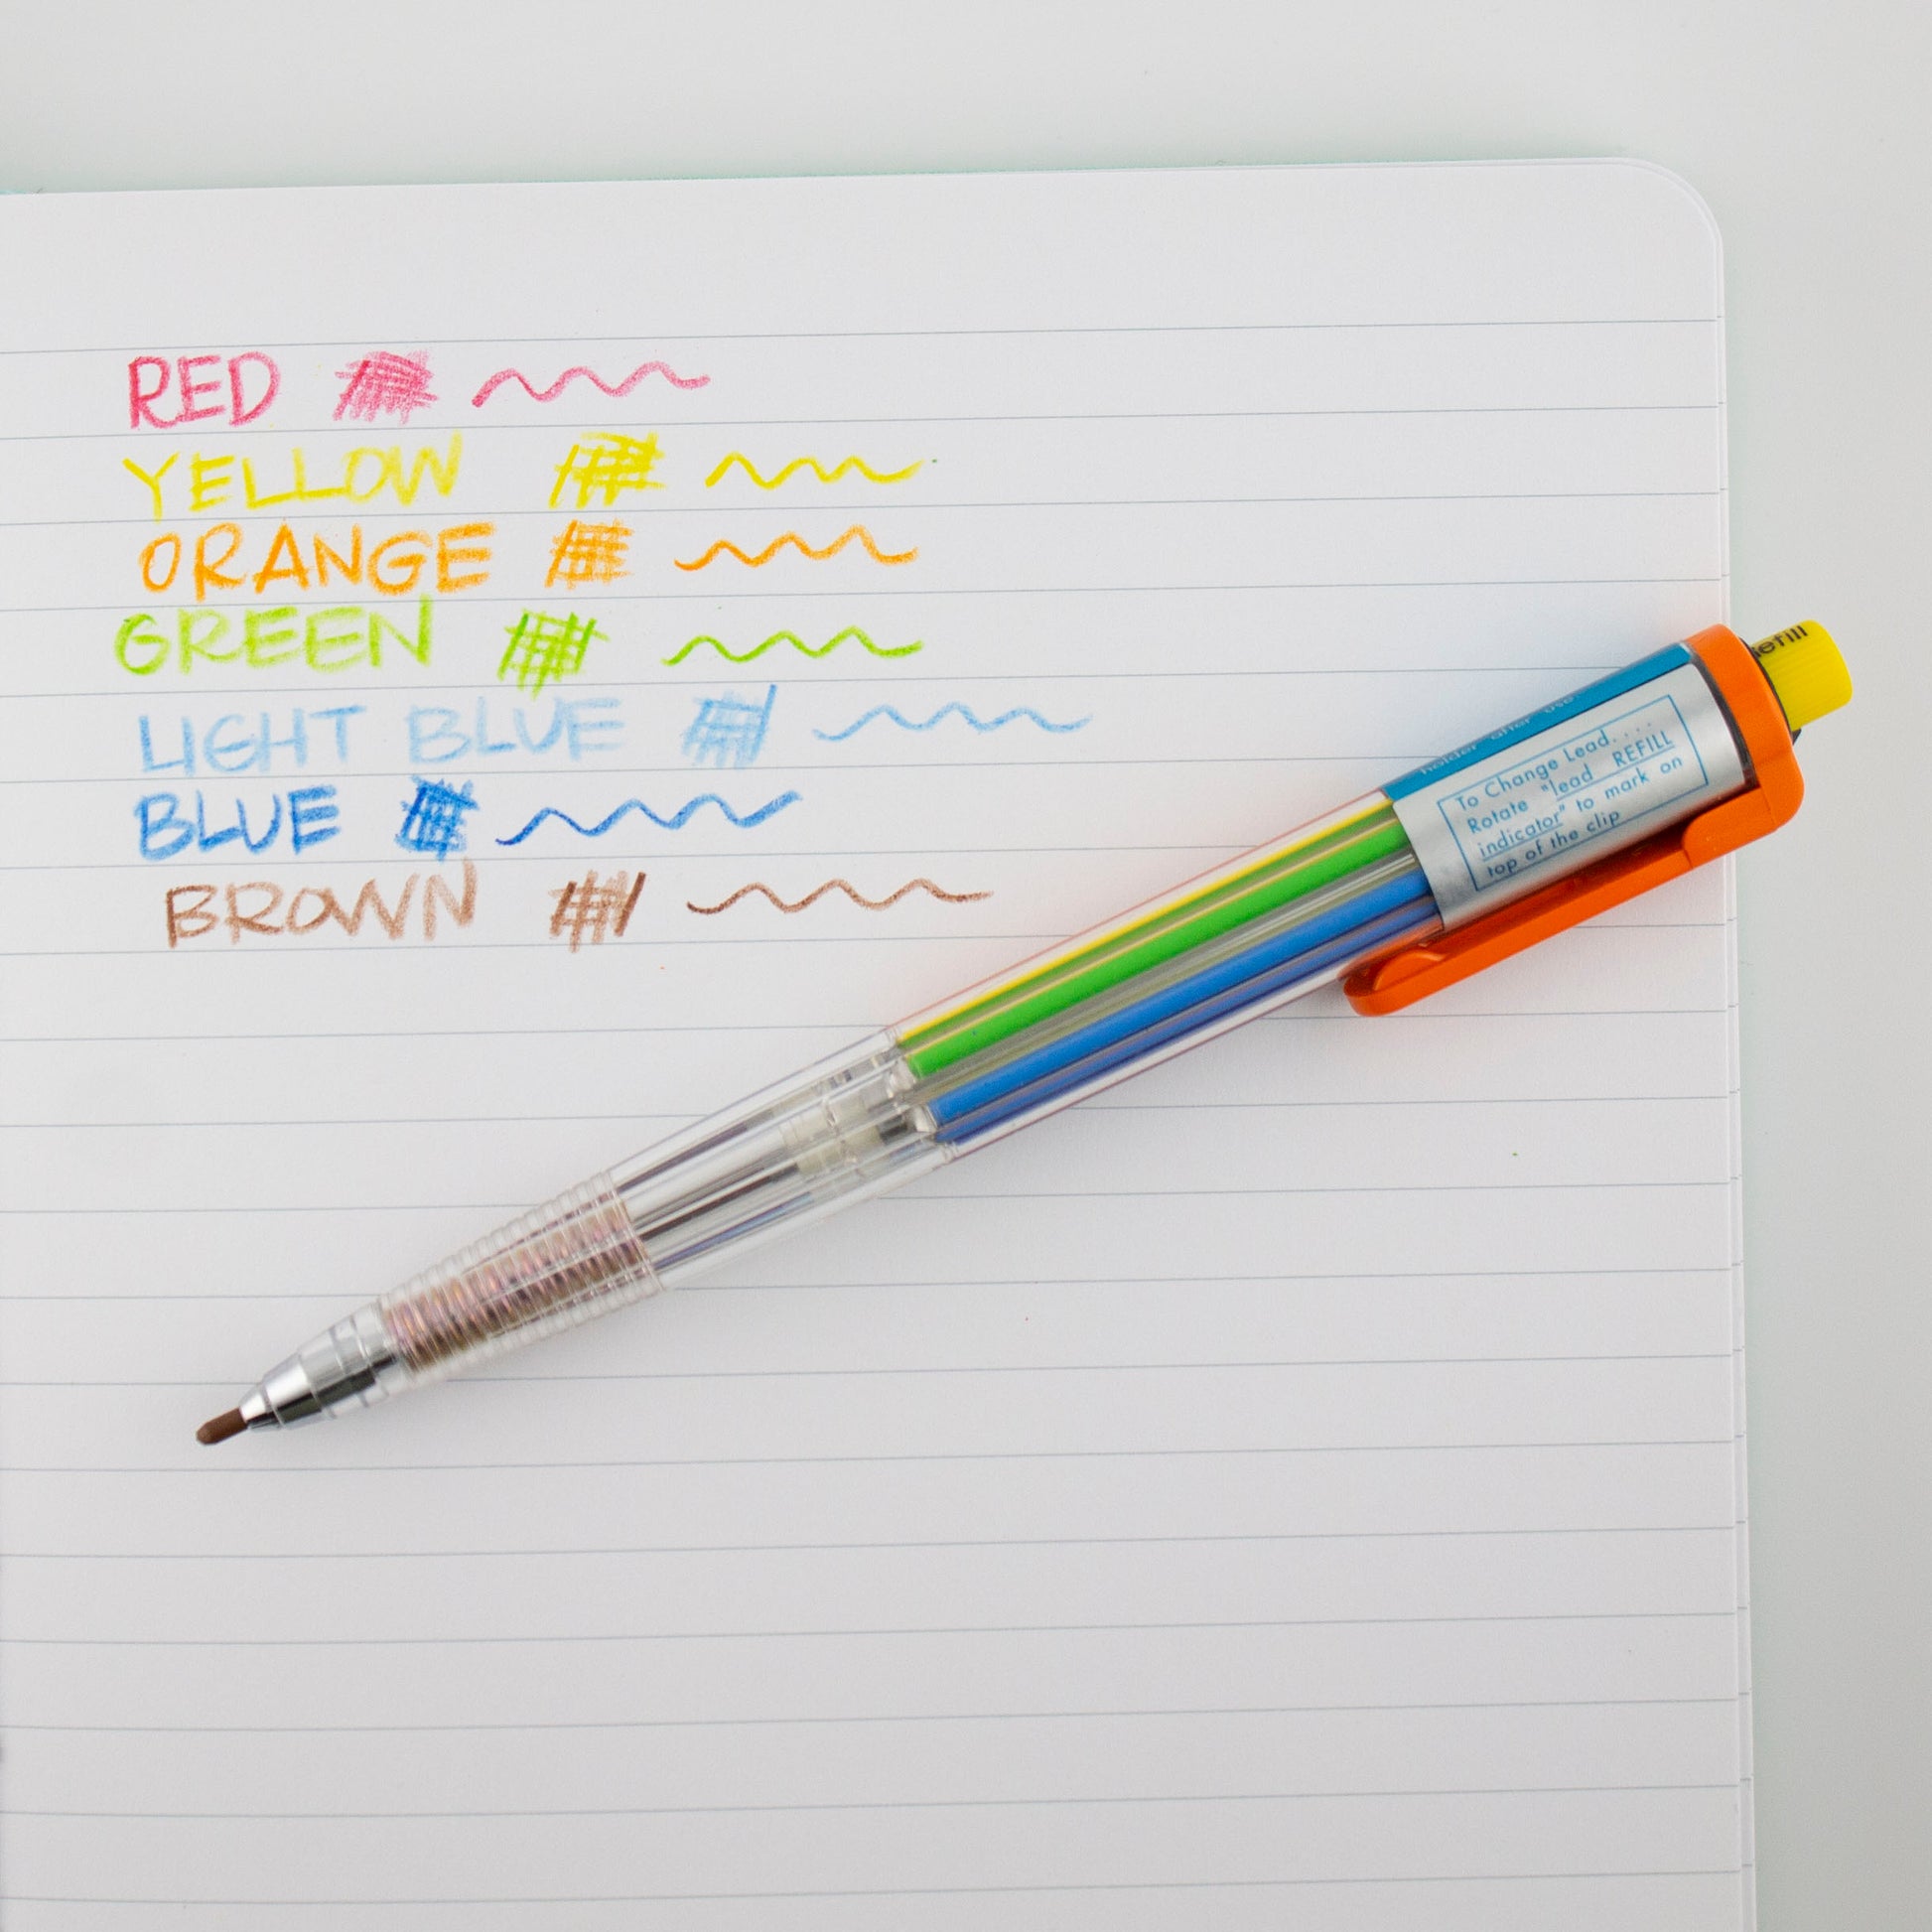 RED
YELLOW
ORANGE
GREEN
LIGHT BLUE
BLUE
BROWN
refill
holder after use
To Change Lead....
Rotate "lead REFILL
indicator" to mark on
top of the clip